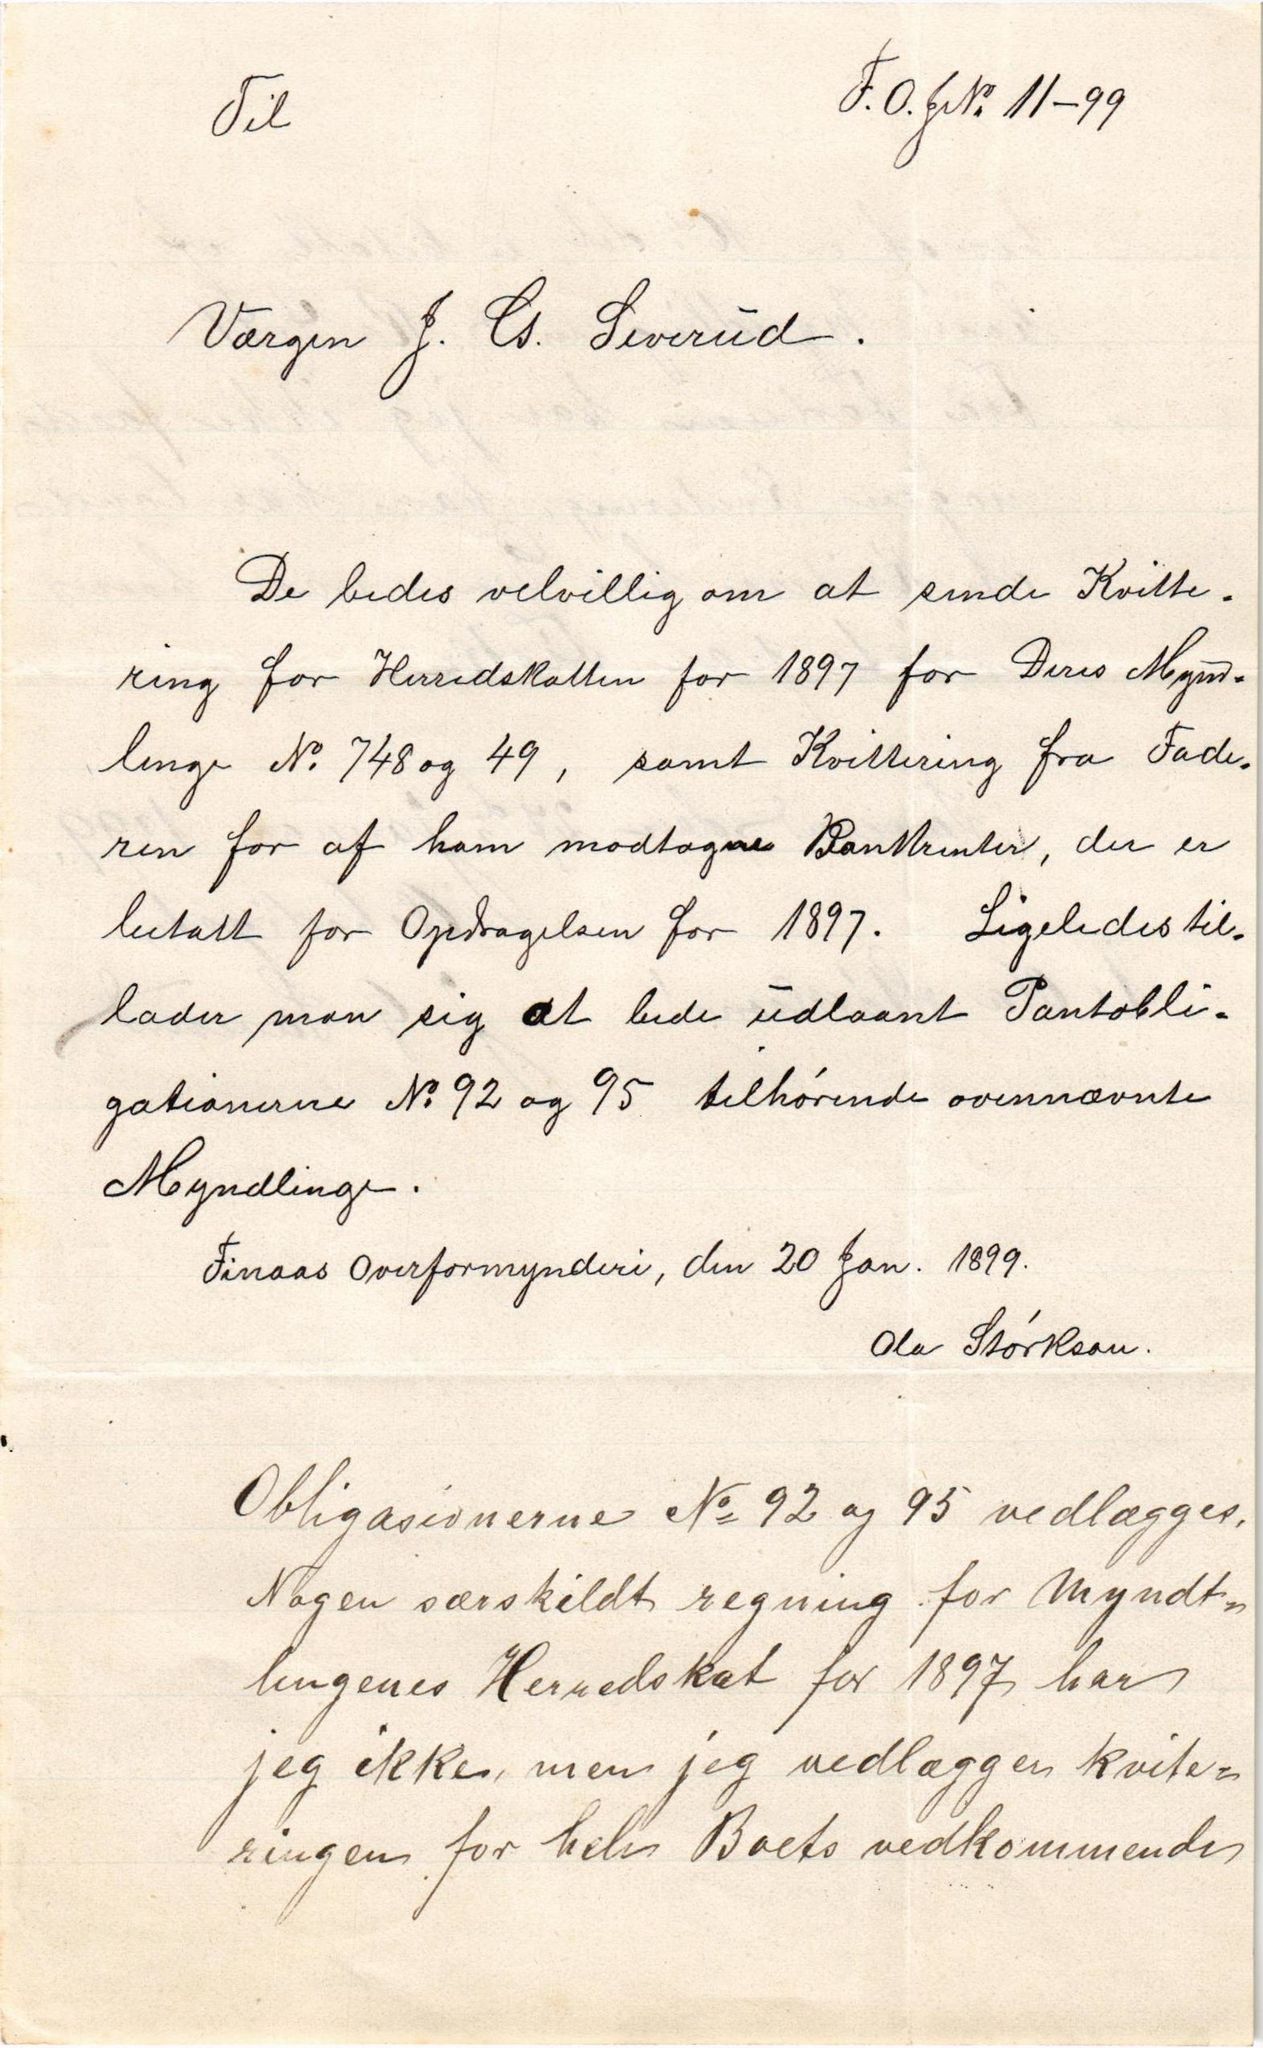 Til
F. O. J№ 11-99
Værgen J. Cs. Severud.
De bedes velvillig om at sende Kvitte-
ring for Herredskatten for 1897 for Deres Mynd-
linge No. 748 og 49, samt Kvittering fra Fade-
ren for af ham modtagne Bankrenter, der er
betalt for Opdragelsen for 1897. Ligeledes til-
lader man sig at bede udlaant Pantobli-
gationerne No. 92 og 95 tilhørende ovennævnte
Myndlinge.
Finaas Overformynderi, den 20 Jan. 1899.
Ola Størkson.
Obligasionerne No 92 og 95 vedlægges.
Nogen særskildt regning for Myndt=
lingenes Herredskat for 1897 har
jeg ikke, men jeg vedlægger kvite=
ringen for hele Boets vedkommende